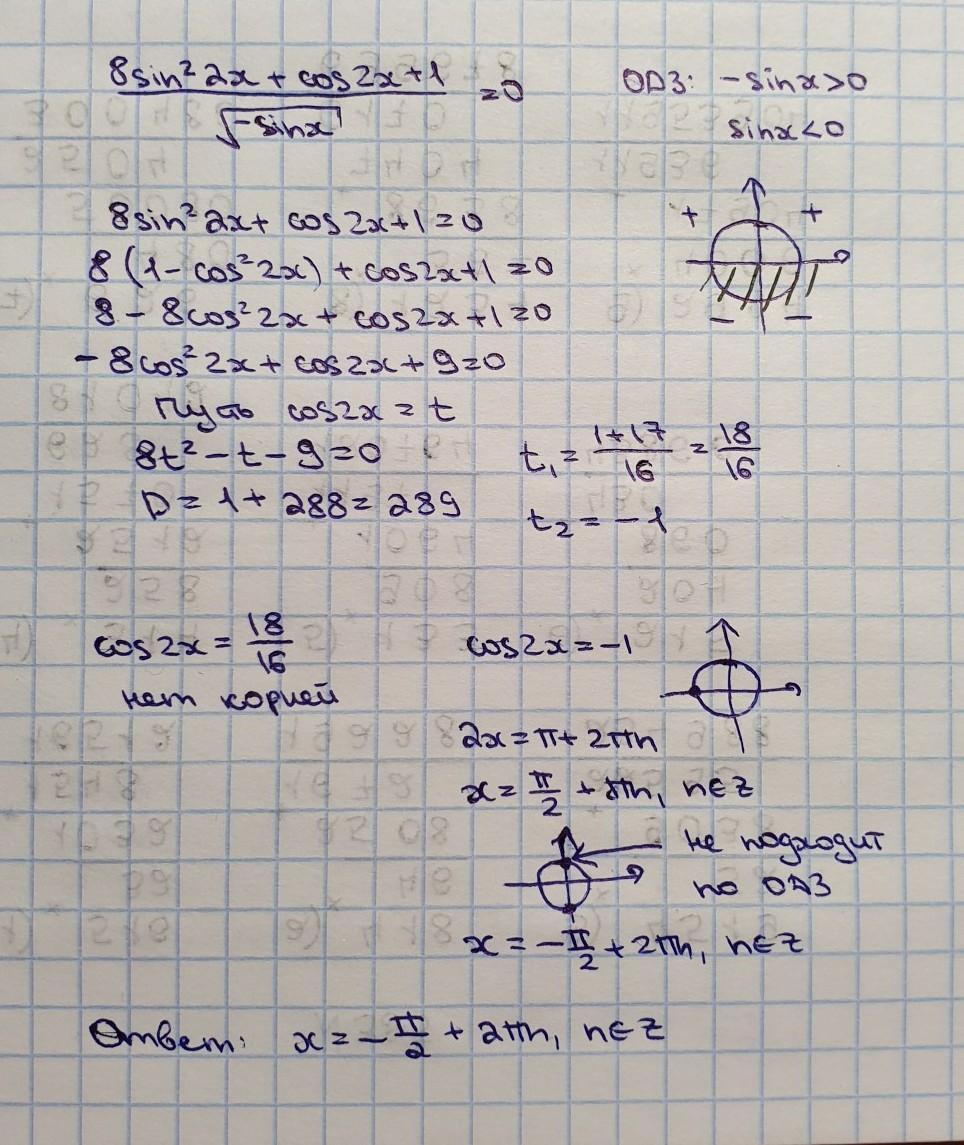 (8sin² 2x + cos2x + 1) / √(-sinx) = 0
ОДЗ: -sinx > 0
sinx < 0
8sin² 2x + cos2x + 1 = 0
+ +
- -
8 (1 - cos² 2x) + cos2x + 1 = 0
8 - 8cos² 2x + cos2x + 1 = 0
- 8cos² 2x + cos2x + 9 = 0
Пусть cos2x = t
8t² - t - 9 = 0
D = 1 + 288 = 289
t₁ = (1+17)/16 = 18/16
t₂ = -1
cos2x = 18/16
нет корней
cos2x = -1
2x = π + 2πn
x = π/2 + πn, n∈Z
не подходит
по ОДЗ
x = -π/2 + 2πn, n∈Z
Ответ: x = -π/2 + 2πn, n∈Z